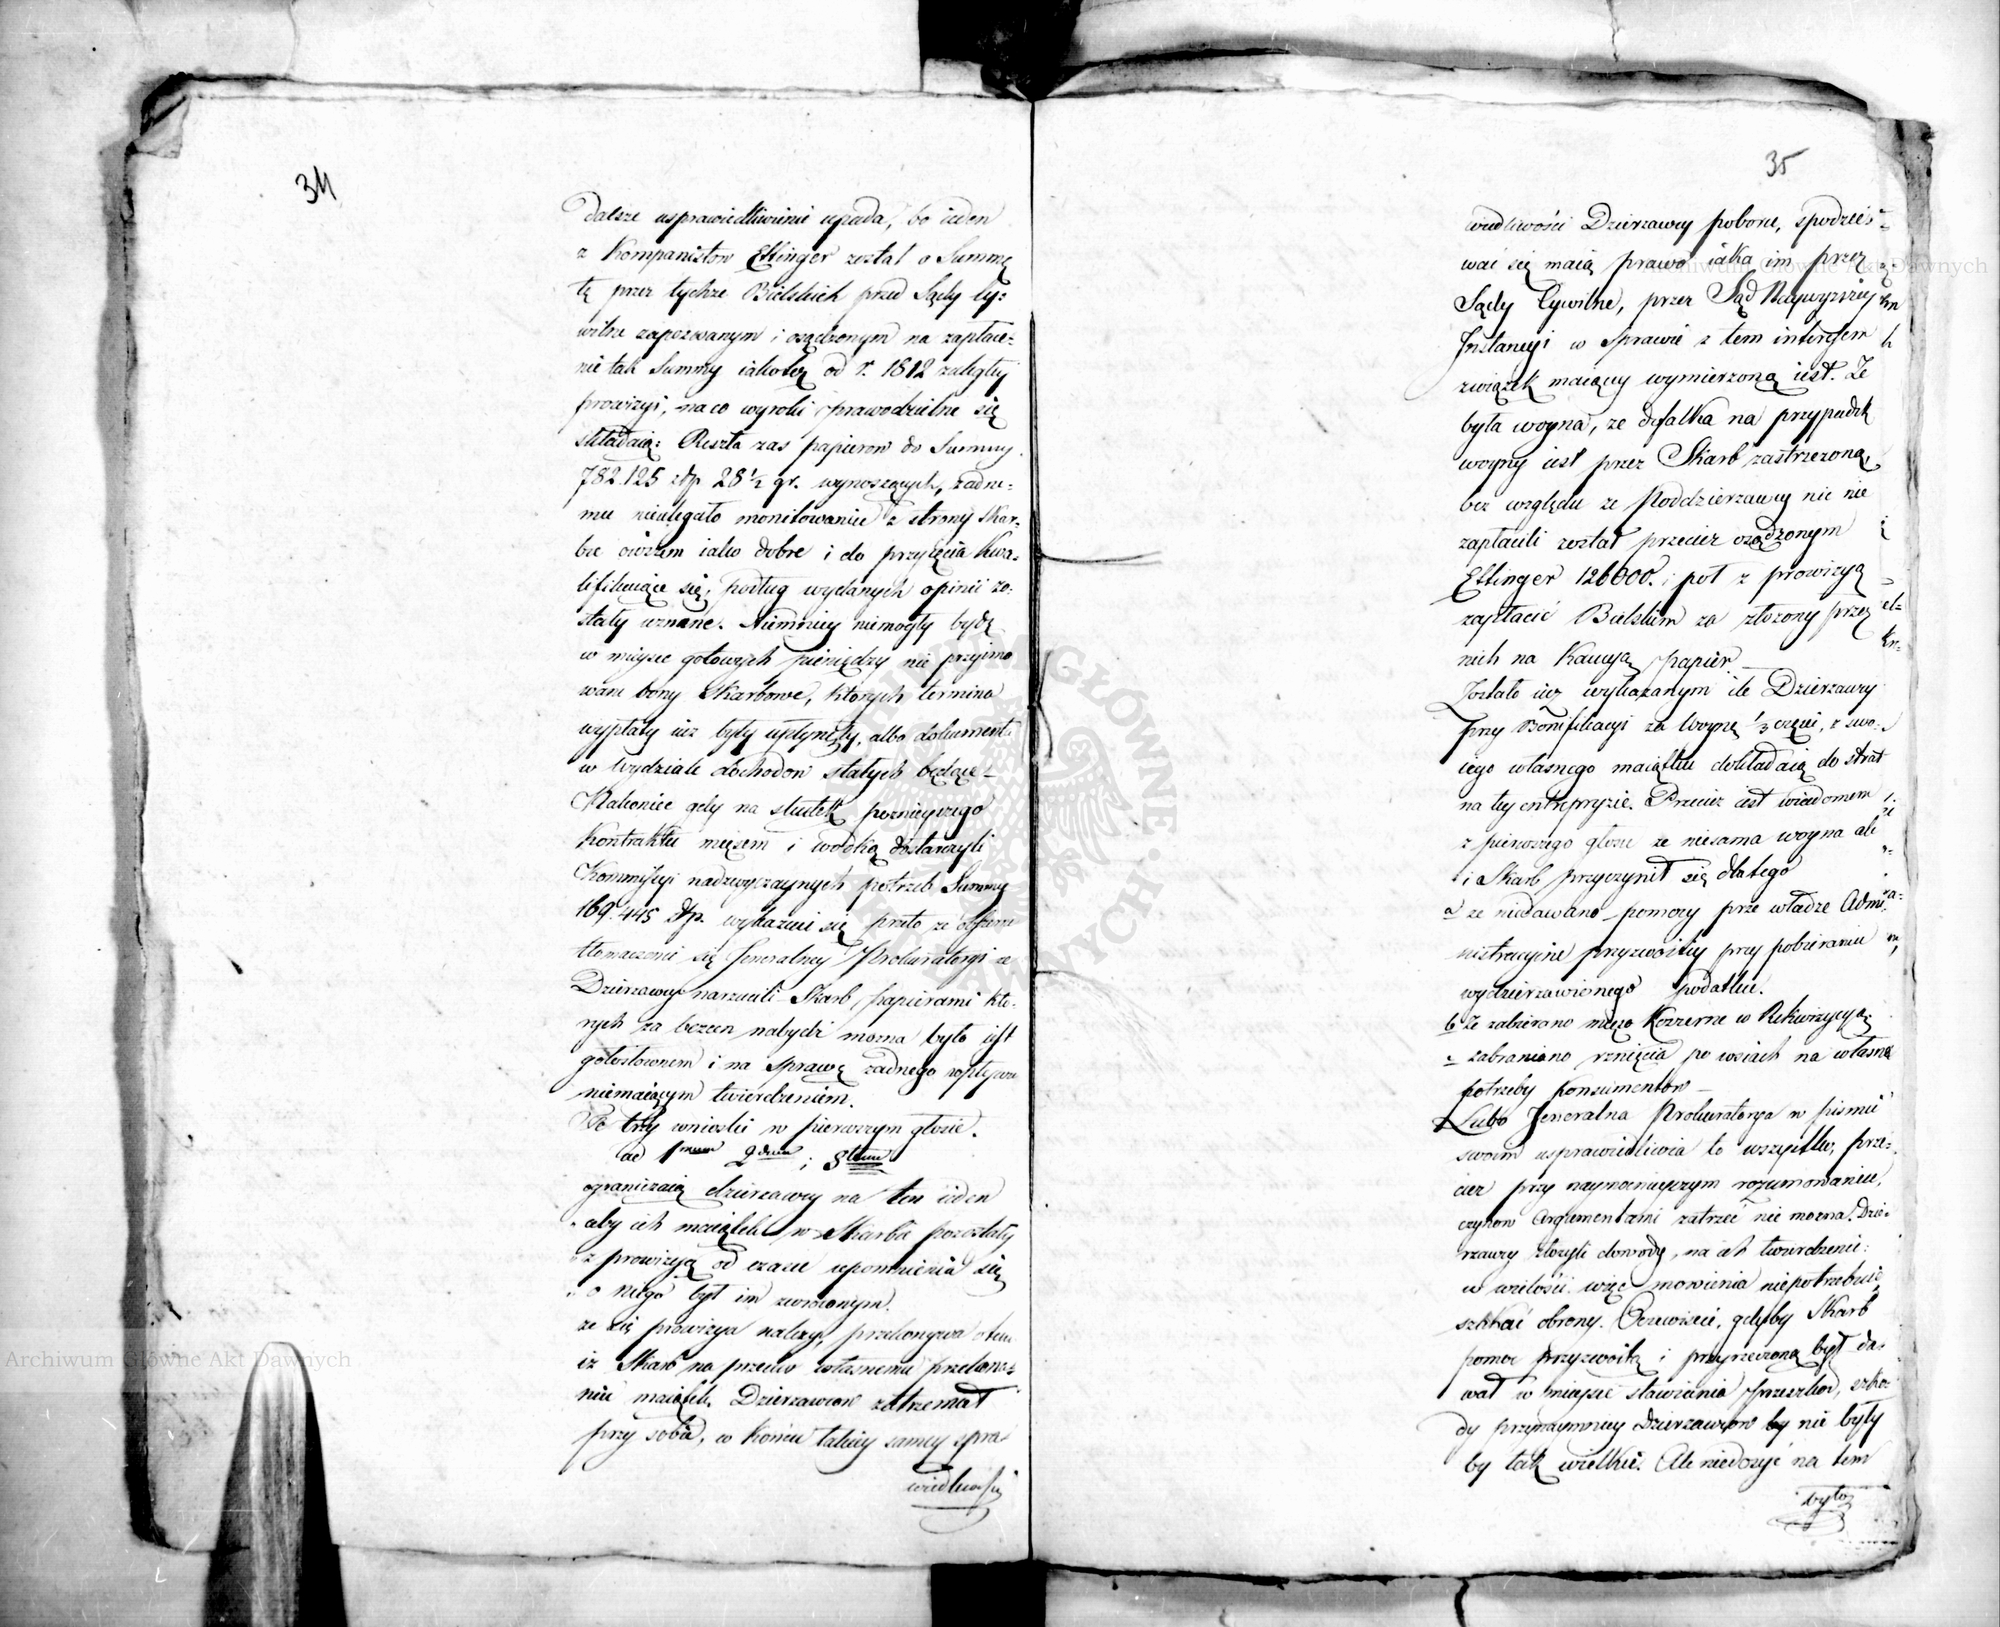 34
dalsze usprawiedliwienie upada, bo ieden
z Kompanistow Ettinger został o Summę
tę przez tychże Bielskich przed Sądy Cy-
wilne zapozwanym i osądzonym na zapłace-
nie tak Summy iakoteż od r. 1812 zaległey
prowizyi, na co wyroki prawodzielne się
składaią: Reszta zas papierow do Summy
782.125 złp 28½ gr. wynoszących, żadne-
mu nieulegało monitowaniu z strony Skar-
bu owszem iako dobre i do przyięcia kwa-
lifikuiące się, podług wydanych opinii zo-
stały uznane. Niemniey niemogły bydź
w mieysce gotowych pieniędzy nie przyimo
wane bony Skarbowe, ktorych termina
wypłaty iuż były upłynęły, albo dokumenta
w Wydziale dochodow stałych będące
Nakoniec gdy na skutek poznieyszego
Kontraktu mięsem i wodką dostarczyli
Kommissyi nadzwyczaynych potrzeb Summę
169.445 złp. wykazuie się przeto ze
tłomaczenie się Jeneralney Prokuratoryi ze
Dzierzawcy narzucili Skarb papierami kto-
rych za bezcen nabydź mozna było iest
gołosłownem i na sprawę żadnego wpływu
niemaiącym twierdzeniem.
Te trzy wnioski w pierwszym głosie.
ad 1mum 2dum i 3tium
ograniczaią dzierzawcy na ten ieden
" aby ich maiątek w Skarbie pozostały
" z prowizyą od czasu upomnienia się
" o niego był im zwroconym.
ze się prowizya należy, przekonywa o tem
iż Skarb na przeciw własnemu przekona-
niu maiątek Dzierzawcow zatrzymał
przy sobie, w końcu takiey samey spra-
wiedliwości
35
wiedliwości Dzierzawcy poboru, spodzie-
wać się maią prawo iaka im przez
Sądy Cywilne, przez Sąd Naywyższey
Instancyi w Sprawie z tem interesem
związek maiącey wymierzoną iest. Że
była woyna, ze defalka na przypadek
woyny iest przez Skarb zastrzeżoną,
bez względu ze Poddzierzawcy nic nie
zapłacili został przecież osądzonym
Ettinger 126000. i pół z prowizyą
zapłacić Bielskim za złożony przez
nich na Kaucyą papier
Zostało iuż wykazanym ile Dzierzawcy
przy Bonifikacyi za Woynę ⅓ części, z swo-
iego własnego maiątku dokładaią do strat
na tey entrepryzie. Przecież iest wiadomem
z pierwszego głosu ze niesama woyna ale
i Skarb przyczynił się dlatego
a ze niedawano pomocy prze władze Admi-
nistracyine przyzwoitey przy pobieraniu
wydzierzawionego podatku.
b Że zabierano mięso Koszerne w Rekwizycyą
c zabraniano rznięcia po wsiach na własne
potrzeby konsumentow
Lubo Jeneralna Prokuratorya w pismie
swoim usprawiedliwia to wszystko, prze-
cież przy naymocnieyszym rozumowaniu,
czynow Argumentami zatrzeć nie mozna. Dzie-
rzawcy złożyli dowody, na ich twierdzenie:
w wielości więc mowienia niepotrzebuią
szukać obrony. Oczywiscie, gdyby Skarb
pomoc przyzwoitą i przyrzeczoną był da-
wał w mieysce stawienia przeszkod, szko-
dy przynaymniey Dzierzawcow by nie były
by tak wielkie. Ale niedosyć na tem
było
Archiwum Główne Akt Dawnych
Archiwum Główne Akt Dawnych